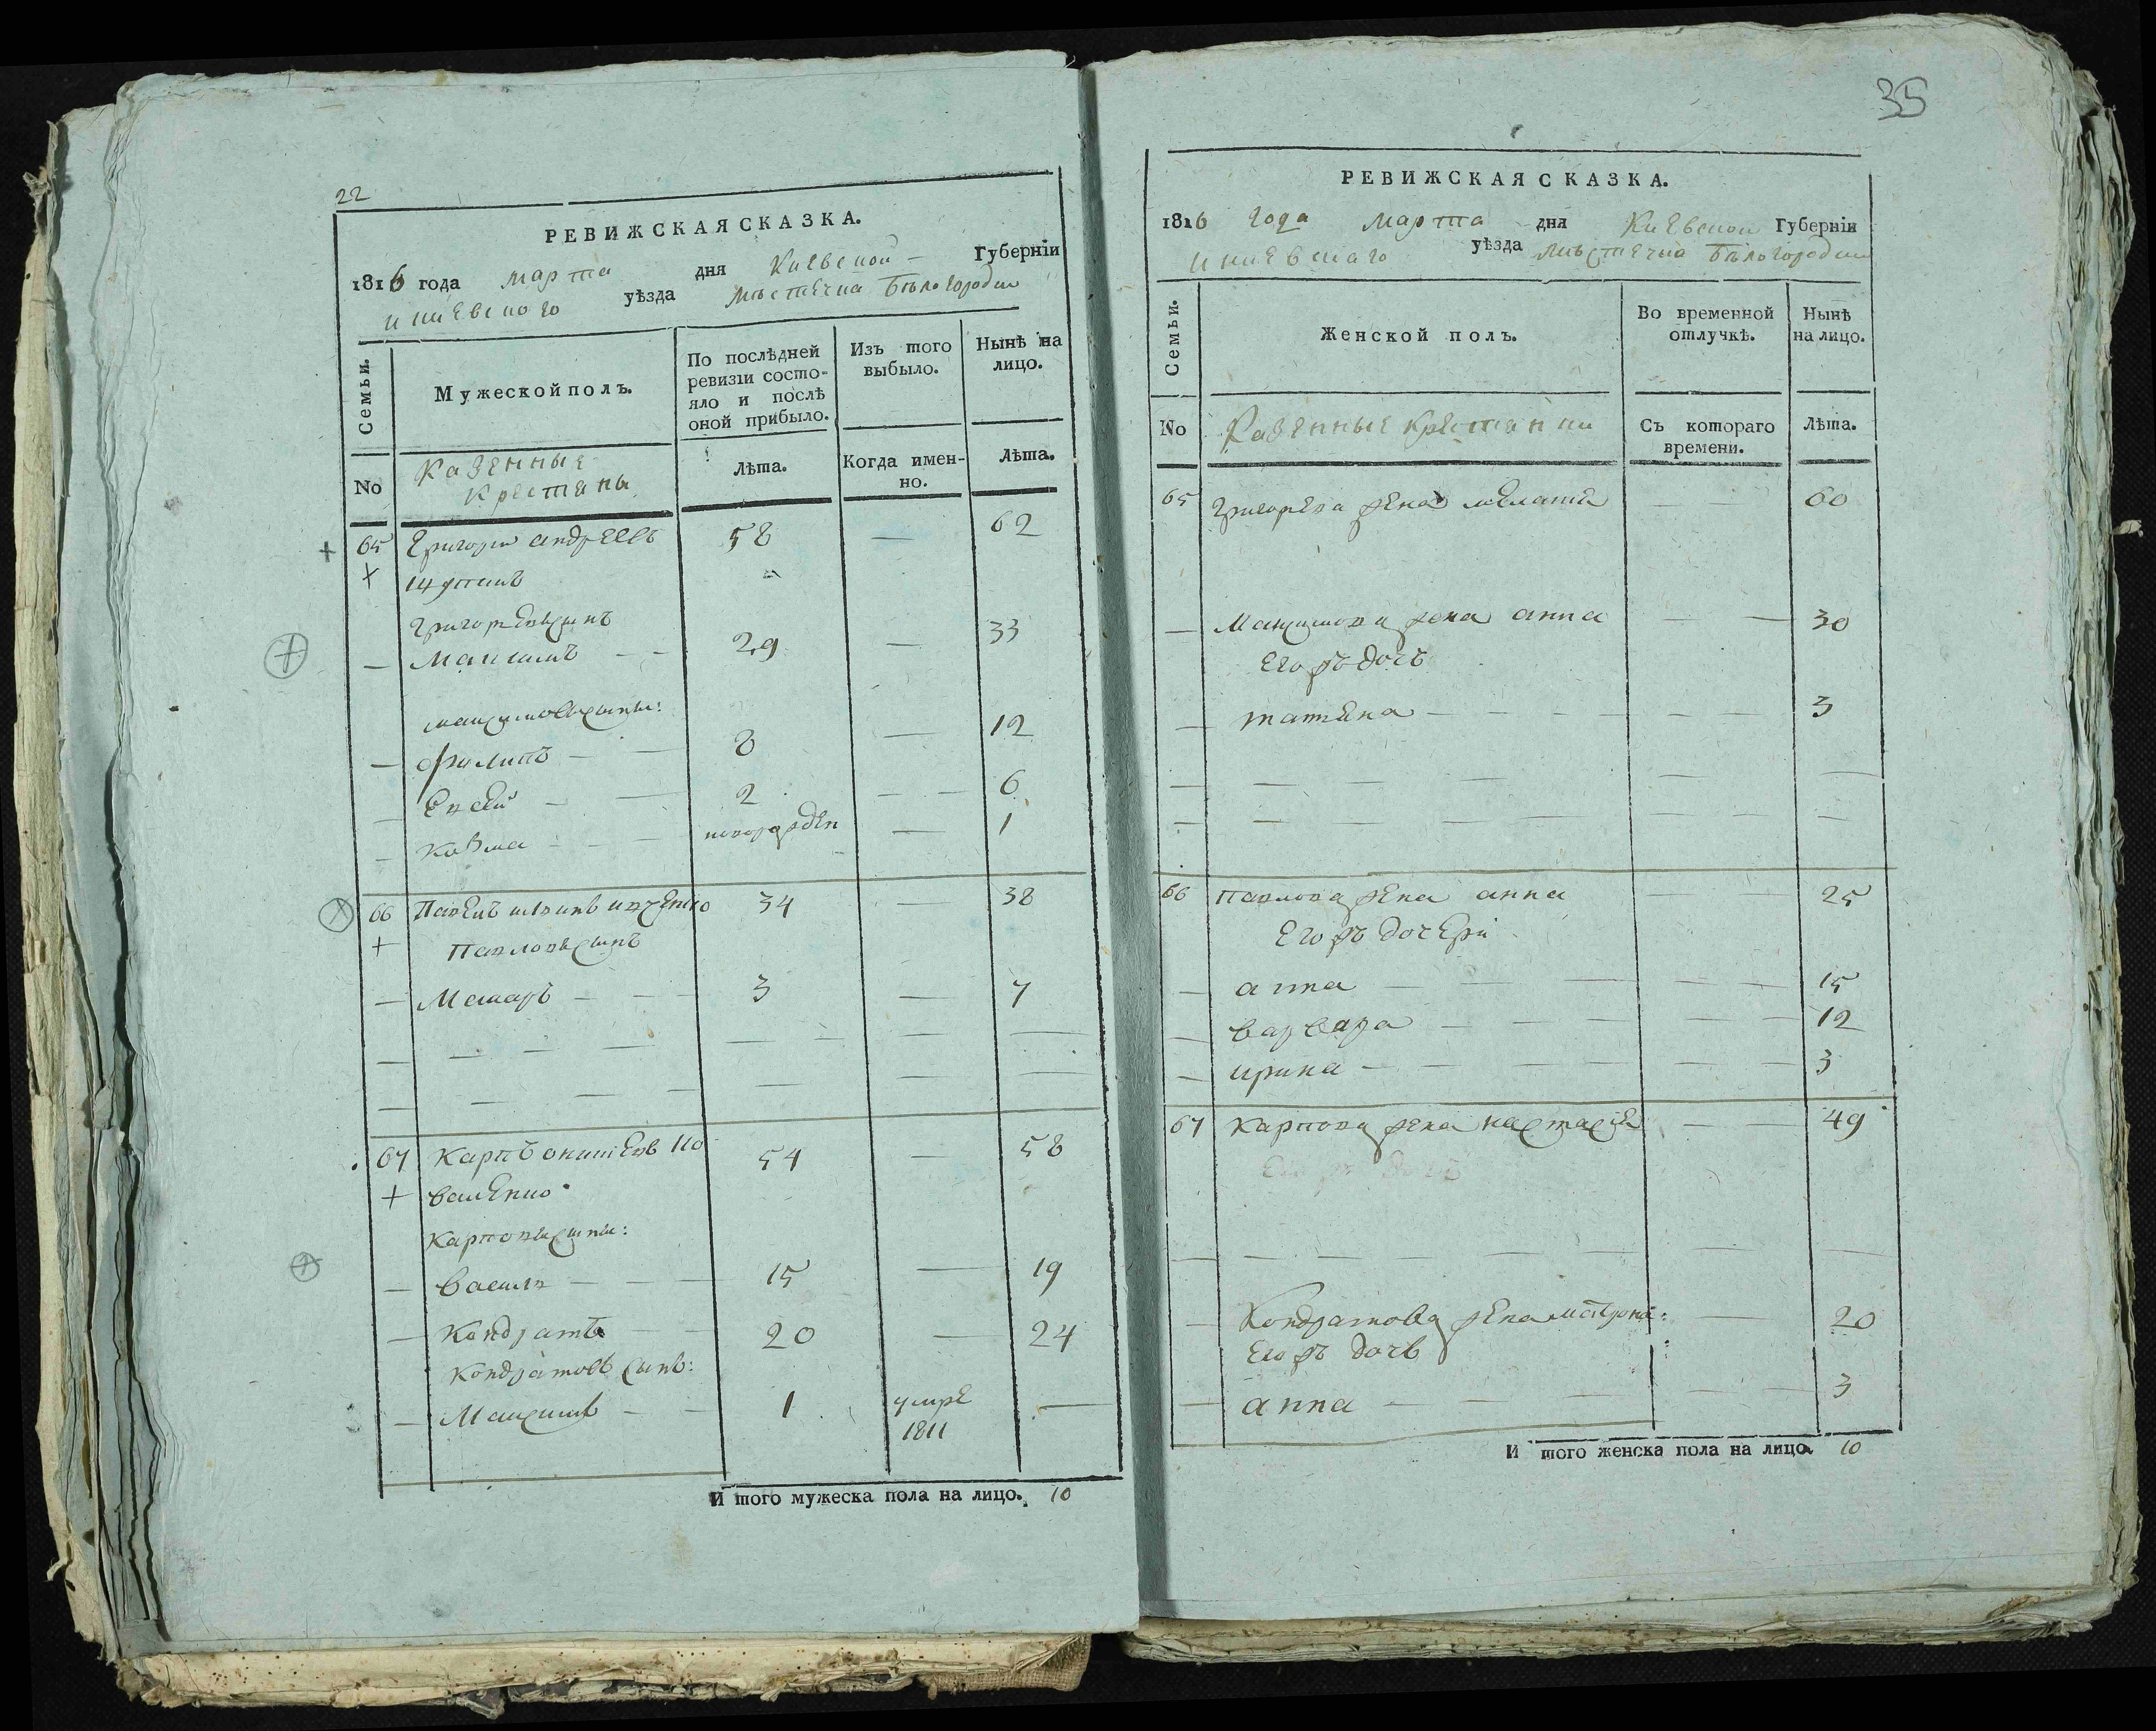 22
РЕВИЖСКАЯ СКАЗКА.
1816 года марта дня Киевской Губернїи
и киевского уѣзда мѣстечка Бѣлогородки
Семьи.
Мужеской полъ.
По послѣдней ревизіи состо-
яло и послѣ
оной прибыло.
Изъ того
выбыло.
Нынѣ на
лицо.
No
Казенные
крестяны
Лѣта.
Когда имен-
но.
Лѣта.
65 Григори андреевъ 58 — 62
Григоревъ сынъ
— Максимъ — — 29 — 33
максимовы сыны:
— филипъ — — 8 — 12
— Евсей — — 2 — — 6
— Козма — — новорожден — 1
66 Павелъ 34 — 38
Павловъ сынъ
— Макаръ — — — 3 — 7
67 Карпъ 54 — 58
валенко
карповы сыны:
— василь — — — 15 — 19
— Кондратъ — — 20 — 24
Кондратовъ сынъ:
— Максимъ — — 1 умре —
1811
И того мужеска пола на лицо. 10
35
РЕВИЖСКАЯ СКАЗКА.
1816 года марта дня Киевской Губернїи
и киевскаго уѣзда мѣстечка Бѣлогородки
Семьи.
Женской полъ.
Во временной
отлучкѣ.
Нынѣ
на лицо.
No
Казенные крестянки
Съ котораго
времени.
Лѣта.
65 Григорева жена мелания — — 60
— Максимова жена анна — — 30
Егожъ дочь
— татяна — — — — — — 3
66 Павлова жена анна — — 25
Егожъ дочери
— анна — — — — — 15
— варвара — — — — — 12
— ирина — — — — — — 3
67 Карпова жена настасия — — 49
Егожъ дочь
— Кондратова жена матрона: — 20
Егожъ дочь
— анна — — — — — 3
И того женска пола на лицо. 10